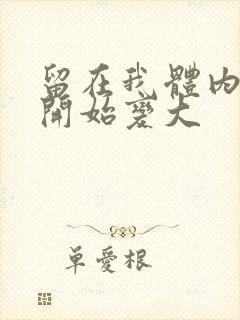 留在我體內
開始變大
單愛根